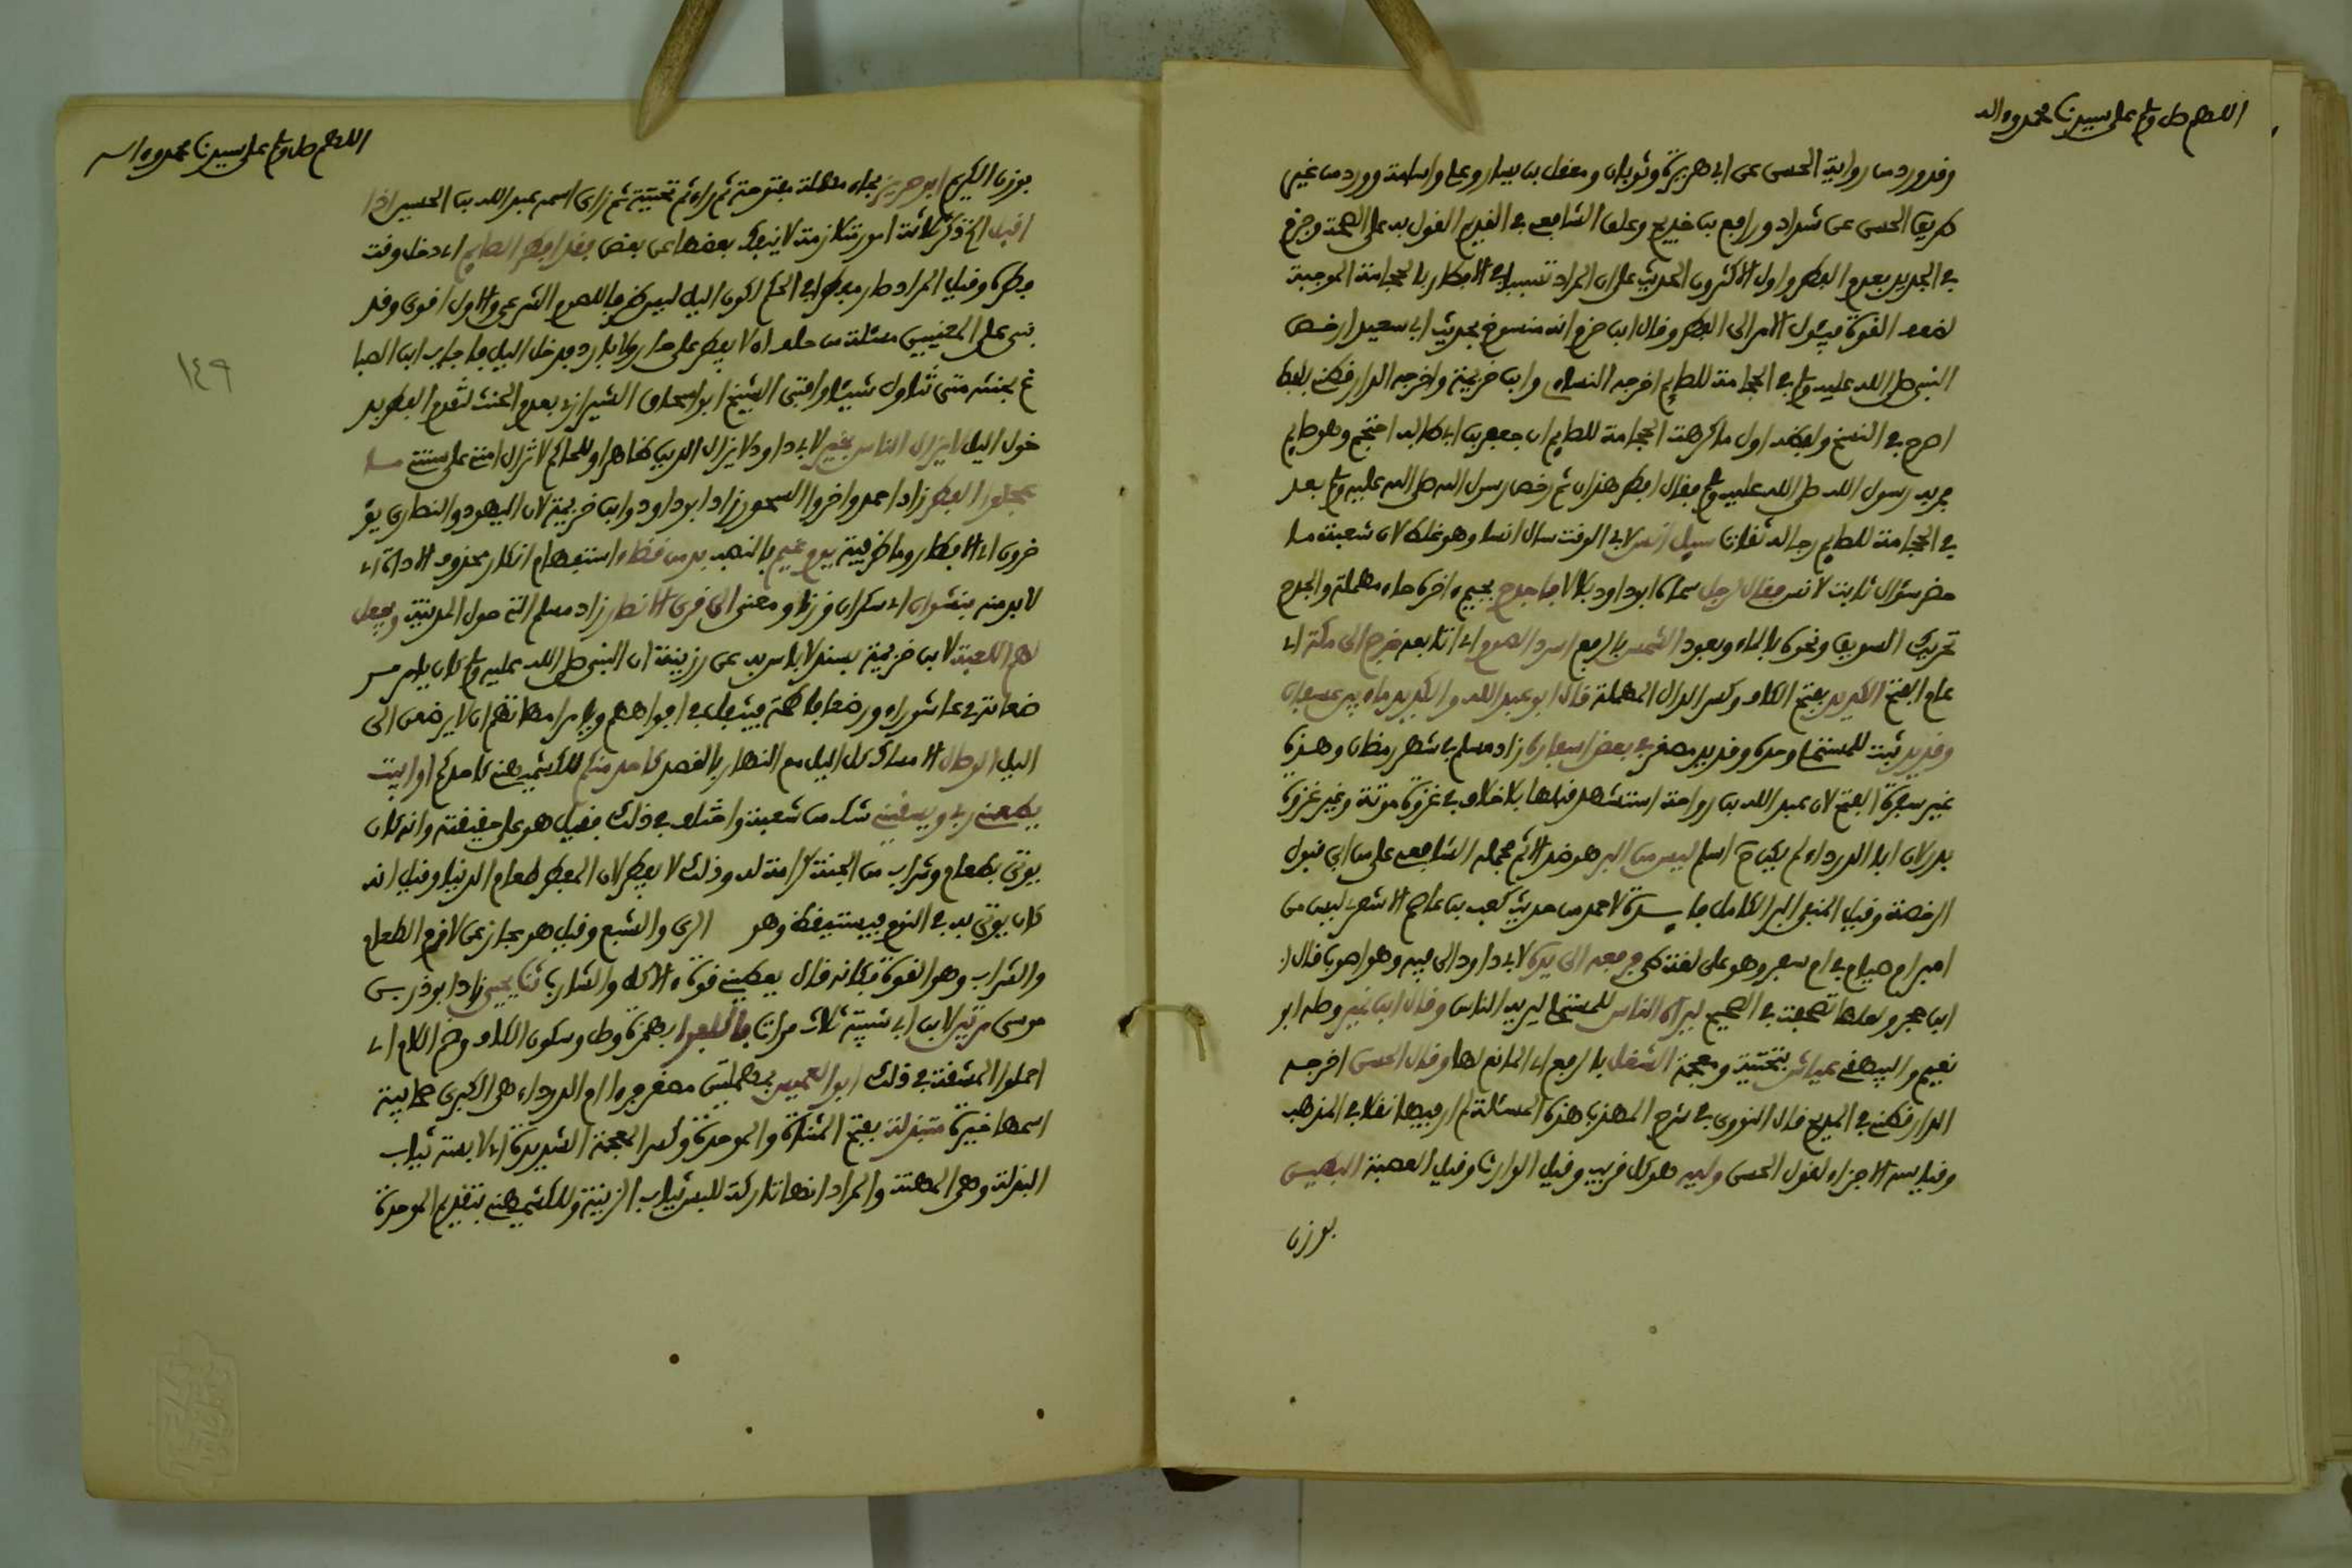 اللهم صل وسلم على سيدنا محمد وءاله
وقد ورد من رواية الحسن عن ابي هريرة وثوبان ومعقل بن يسار وعلي واسامة وورد من غير
طريق الحسن عن شداد ورافع بن خديج وعلق الشافعي في القديم القول به على الصحة وجزم
في الجديد بعدم الفطر واول الاكثرون الحديث على ان المراد تسببا في الافطار بالحجامة الموجبة
لضعف القوة فيئول الامر الى الفطر وقال ابن حزم انه منسوخ بحديث ابي سعيد ارخص
النبي صلى الله عليه وسلم في الحجامة للصايم اخرجه النساءي وابن خزيمة واخرجه الدارقطني بلفظ
اصرح في النسخ ولفظه اول ما كرهت الحجامة للصايم ان جعفر بن ابي طالب احتجم وهو صايم
فمر به رسول الله صلى الله عليه وسلم فقال افطر هذان ثم رخص رسول الله صلى الله عليه وسلم بعد
في الحجامة للصايم رجاله ثقات سيل انس لابي الوقت سال انسا وهو غلط لان شعبة ما
حضر سؤال ثابت لانس فقال لرجل سماه ابو داود بلالا فاجدح بجيم ءاخره حاء مهملة والجدح
تحريك السويق ونحوه بالماء وبعود الشمس بالرفع اسرد الصوم اي اتابعه خرج الى مكة اي
عام الفتح الكديد بفتح الكاف وكسر الدال المهملة قال ابو عبد الله والكديد ماء بين عسفان
وقديد ثبت للمستملي وحده وقديد مصغر في بعض اسفاره زاد مسلم في شهر رمضان وهذه
غير سفرة الفتح لان عبد الله بن رواحة استشهد قبلها بلا خلاف في غزوة موتة وغير غزوة
بدر لان ابا الدرداء لم يكن ح اسلم ليس من البر هو ضد الاثم حمله الشافعي على من ابى قبول
الرخصة وقيل المنفي البر الكامل فايدة لاحمد من حديث كعب بن عاصم الاشعري ليس من
امبر ام صيام في ام سفر وهو على لغة طي فرفعه الى يده لابي داود الى فيه وهو اصوب قال
ابن حجر ولعلها تصحفت في الصحيح ليراه الناس للمستملي ليريه الناس وقال ابن نمير وصله ابو
نعيم والبيهقي عياش بتحتية ومعجمة الشغل بالرفع اي المانع لها وقال الحسن اخرجه
الدارقطني في المدبج قال النووي في شرح المهذب هذه المسئلة لم ار فيها نقلا في المذهب
وقياسه الاجزاء لقول الحسن وليه هو كل قريب وقيل الوارث وقيل العصبة البطين
بوزن
اللهم صل وسلم على سيدنا محمد وءاله
بوزن الكريم ابو حريز بحاء مهملة مفتوحة ثم راء ثم تحتية ثم زاي اسمه عبد الله بن الحسين اذا
اقبل الخ ذكر ثلاثة امور متلازمة لا ينفك بعضها عن بعض فقد افطر الصايم اي دخل وقت
فطره وقيل المراد صار مفطرا في الحكم لكون اليل ليس ظرفا للصوم الشرعي والاول اقوى وقد
بنى على المعنيين مسئلة من حلف ان لا يفطر على حار ولا بارد فدخل اليل فاجاب ابن الصبا
غ بحنثه متى تناول شيئا وافتى الشيخ ابو اسحاق الشيرازي بعدم الحنث لتقدم الفطر بد
خول اليل لا يزال الناس بخير لابي داود لا يزال الدين ظاهرا وللحاكم لا تزال امتي على سنتي ما
عجلوا الفطر زاد احمد واخروا السحور زاد ابو داود وابن خزيمة لان اليهود والنصارى يؤ
خرون اي الافطار وما ظرفية يوم غيم بالنصب بد من قضاء استفهام انكار محذوف الاداة اي
لا بد منه بنشوان اي سكران وزنا ومعنى الى قرى الانصار زاد مسلم التي حول المدينة ونجعل
لهم اللعبة لابن خزيمة بسند لا باس به عن رزينة ان النبي صلى الله عليه وسلم كان يامر مر
ضعاته في عاشوراء ورضعا فاطمة فيتفل في افواههم ويامر امهاتهم ان لا يرضعن الى
اليل الوصال الامساك كل اليل مع النهار بالقصد كاحد منكم للكشميهني كاحدكم اوابيت
يطعمني ربي ويسقيني شك من شعبة واختلف في ذلك فقيل هو على حقيقته وانه كان
يؤتى بطعام وشراب من الجنة كرامة له وذلك لا يفطر لان المفطر طعام الدنيا وقيل انه
كان يؤتى به في النوم فيستيقظ وهو الري والشبع وقيل هو مجاز عن لازم الطعام
والشراب وهو القوة فكانه قال يعطيني قوة الاكل والشارب ثنا يحيى زاد ابو ذر بن
موسى مرتين لابن ابي شيبة ثلاث مرات فاكلفوا بهمزة وصل وسكون الكاف وضم اللام اي
احملوا المشقة في ذلك ابو العميس بمهملتين مصغر فرءا ام الدرداء هي الكبرى صحابية
اسمها خيرة متبذلة بفتح المثناة والموحدة وكسر المعجمة الشديدة اي لابسة ثياب
البذلة وهي المهنة والمراد انها تاركة للبس ثياب الزينة وللكشميهني بتقديم الموحدة
١٤٩